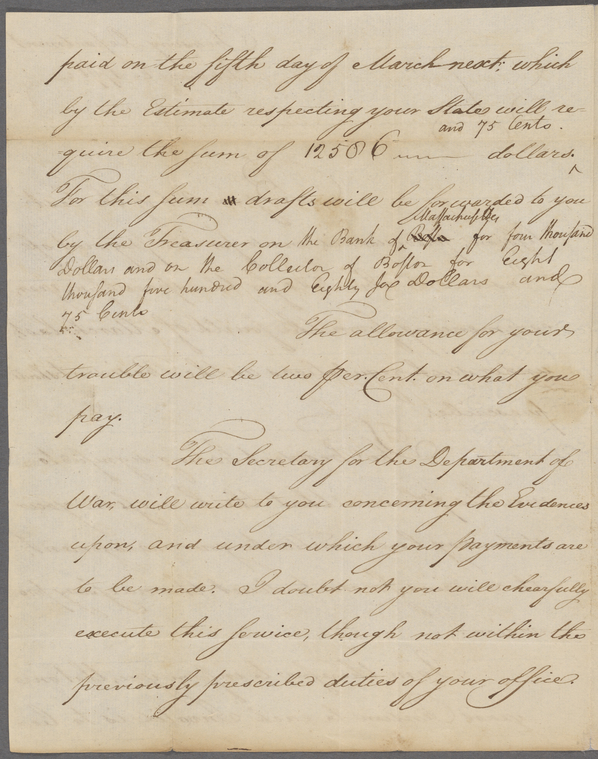 paid on the fifth day of March next: which
by the Estimate respecting your State will re-
and 75 Cents.
quire the sum of 12586 dollars.
For this sum drafts will be forwarded to you
Massachusetts
by the Treasurer on the Bank of for four thousand
Dollars and on the Collector of Boston for Eight
thousand five hundred and Eighty six Dollars and
75 Cents
The allowance for your
trouble will be two per Cent. on what you
pay.
The Secretary for the Department of
War, will write to you concerning the Evidences
upon, and under which your payments are
to be made. I doubt not you will chearfully
execute this service, though not within the
previously prescribed duties of your office.